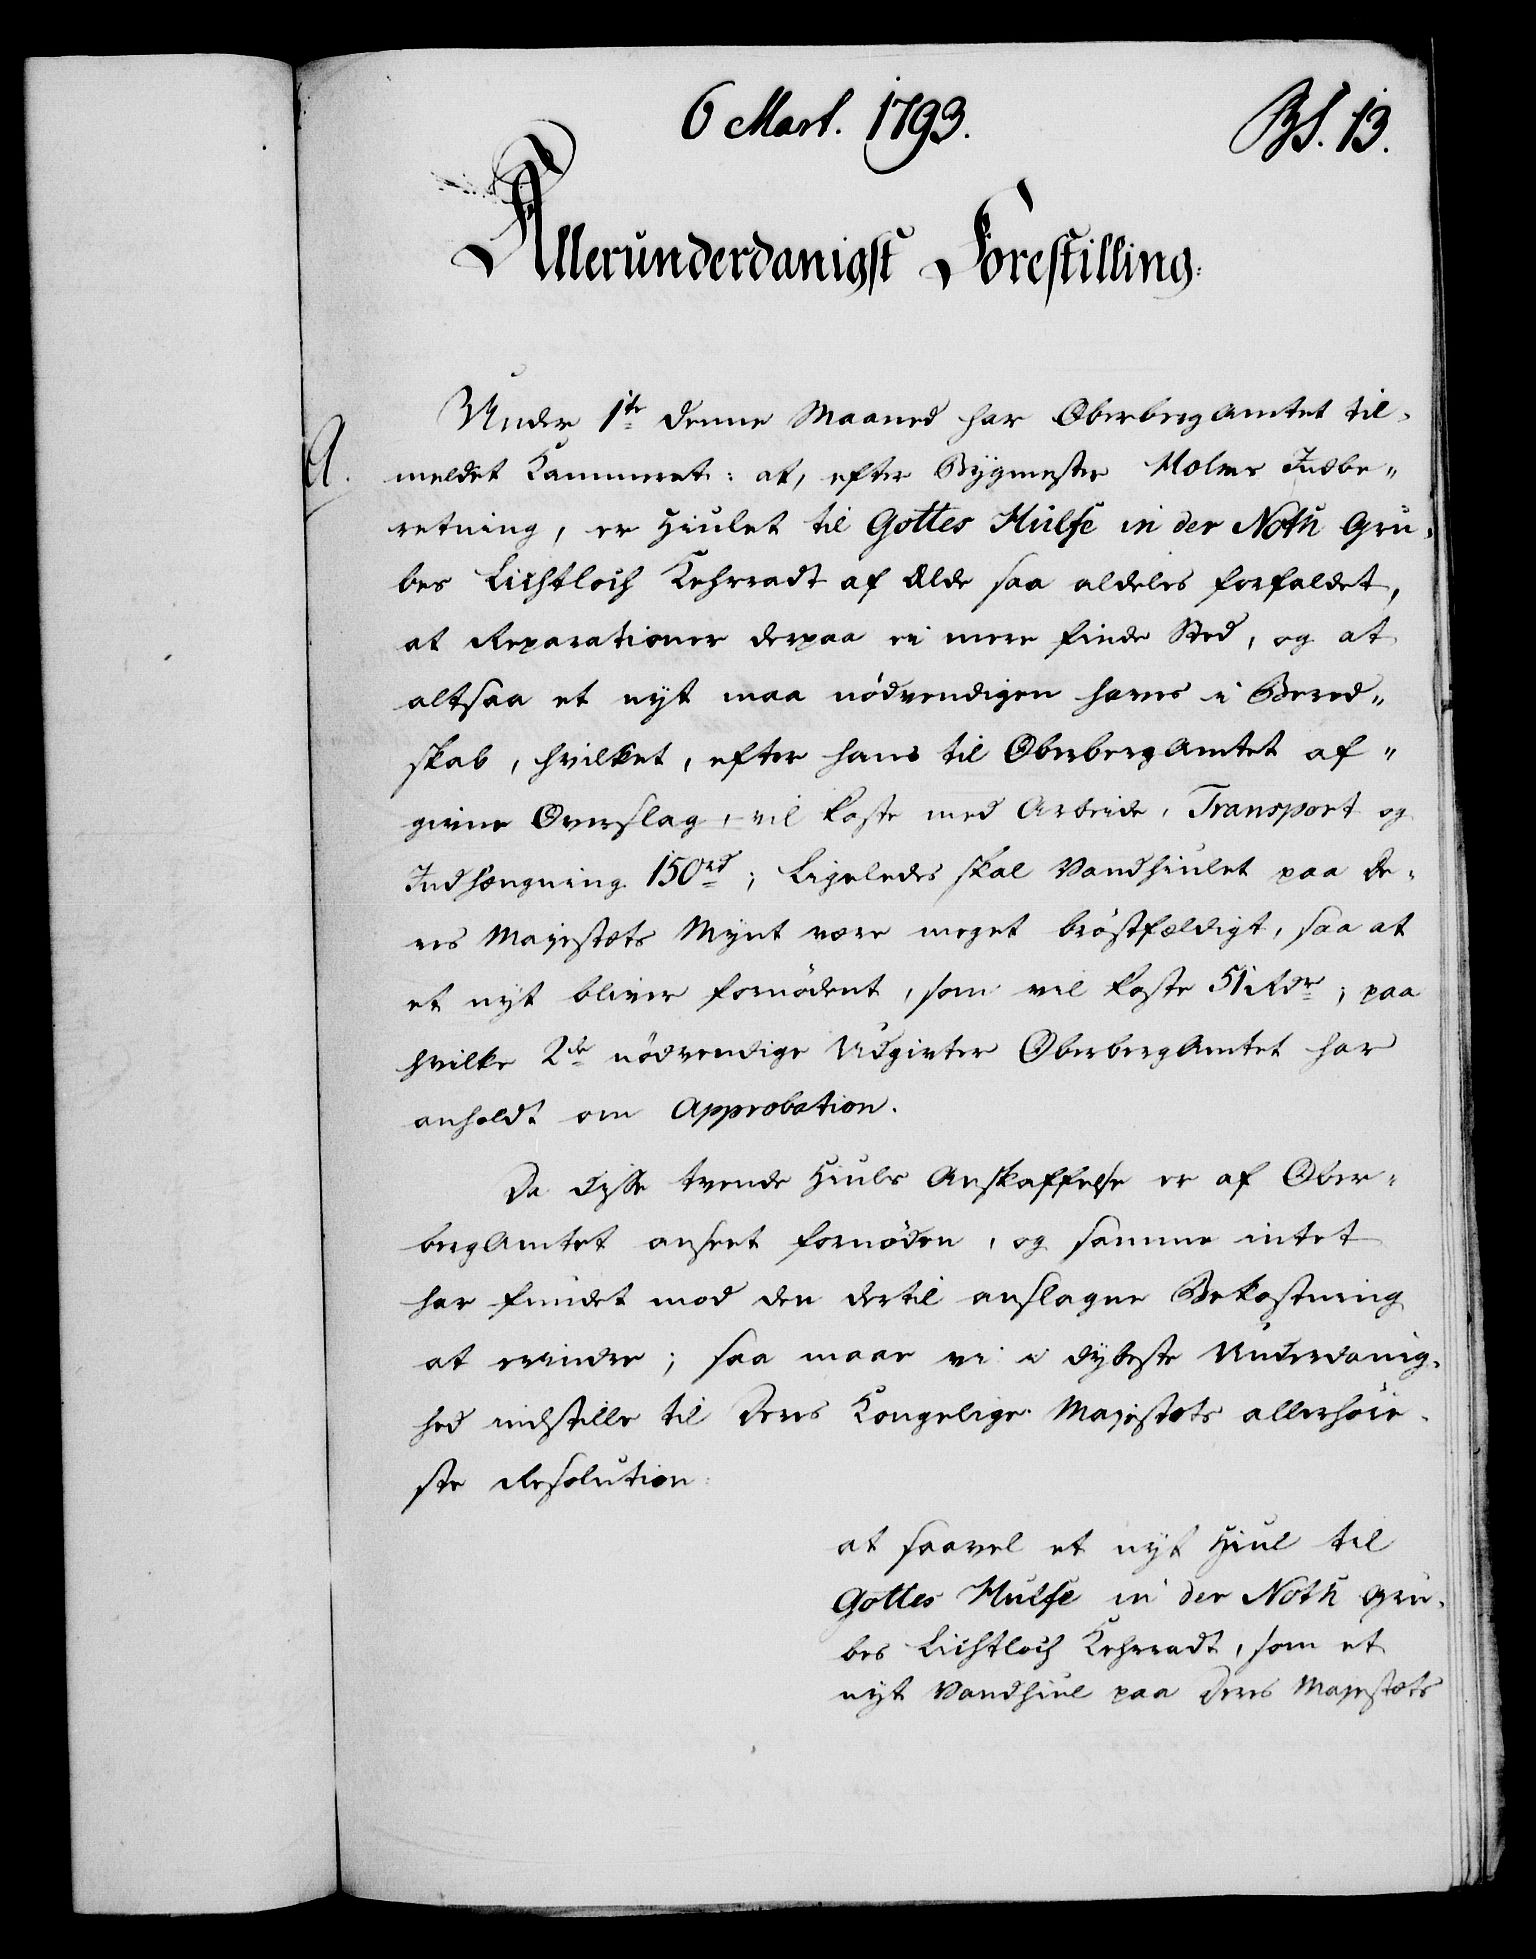 6 Mart. 1793.
Bf. 13.
Allerunderdanigst Forestilling:
Under 1ste denne Maaned har Oberberg Amtet til-
A.
meldet Kammeret: at, efter Bygmester Holms Indbe-
retning, er Hiulet til Gottes Hülfe in der Noth Gru-
bes Lichtloch Kehrradt af Ælde saa aldeles forfaldet,
at Reparationer derpaa ei mere finde Sted, og at
altsaa et nyt maa nödvendigen haves i Bered-
skab, hvilket, efter hans til Oberberg Amtet af-
givne Overslag, vil koste med Arbeide, Transport og
Indhængning 150rd; Ligeledes skal Vandhiulet paa De-
res Majestæts Mynt være meget bröstfældigt, saa at
et nyt bliver fornödent, som vil koste 51 Rdr; paa
hvilke 2de nödvendige Udgivter Oberberg Amtet har
anholdt om Approbation.
Da disse tvende Hiuls Anskaffelse er af Ober-
berg Amtet anseet fornöden, og samme intet
har fundet mod den dertil anslagne Bekostning
at erindre; saa maae vi i dybeste Underdanig-
hed indstille til Deres Kongelige Majestæts allerhöie-
ste Resolution:
at saavel et nyt Hiul til
Gottes Hülfe in der Noth Gru-
bes Lichtloch Kehrradt, som et
nyt Vandhiul paa Deres Majestæts